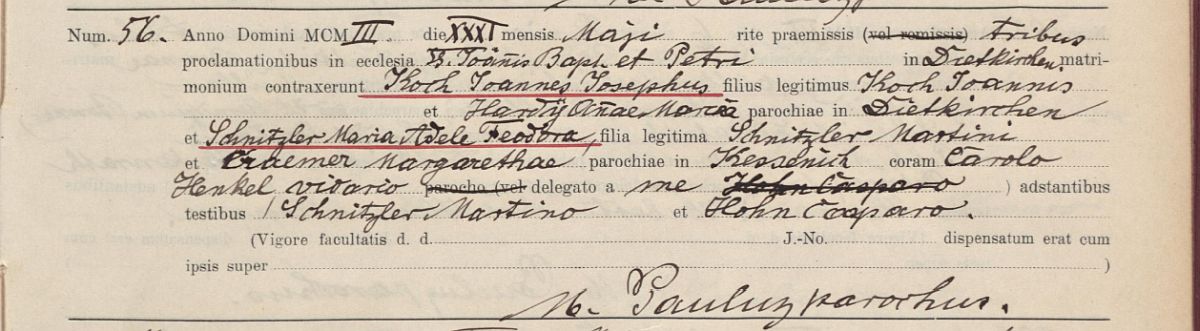 Num. 56. Anno Domini MCM III. die XXXI mensis Maji rite praemissis (vel remissis) tribus
proclamationibus in ecclesia SS. Joãnis Bapt. et Petri in Dietkirchen, matri-
monium contraxerunt Koch Joannes Josephus filius legitimus Koch Joannis
et Hardÿ Añae Maria parochiae in Dietkirchen
et Schnitzler Maria Adele Feodora, filia legitima Schnitzler Martini
et Craemer Margarethae parochiae in Kessenich coram Carolo
Henkel vicario parocho (vel delegato a me Hohn Casparo ) adstantibus
testibus Schnitzler Martino et Hohn Casparo.
(Vigore facultatis d. d. J.-No. dispensatum erat cum
ipsis super )
M. Pauluz parochus.